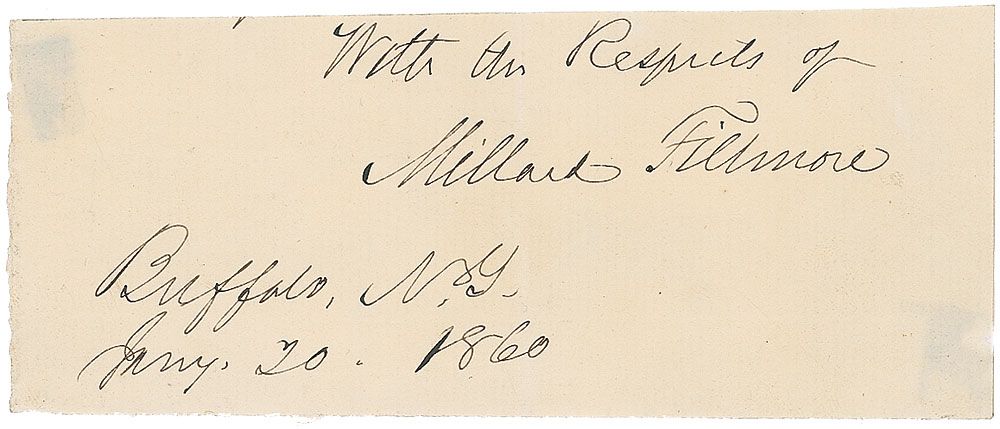 With the Respects of
Millard Fillmore
Buffalo, N.Y.
Jany. 20. 1860